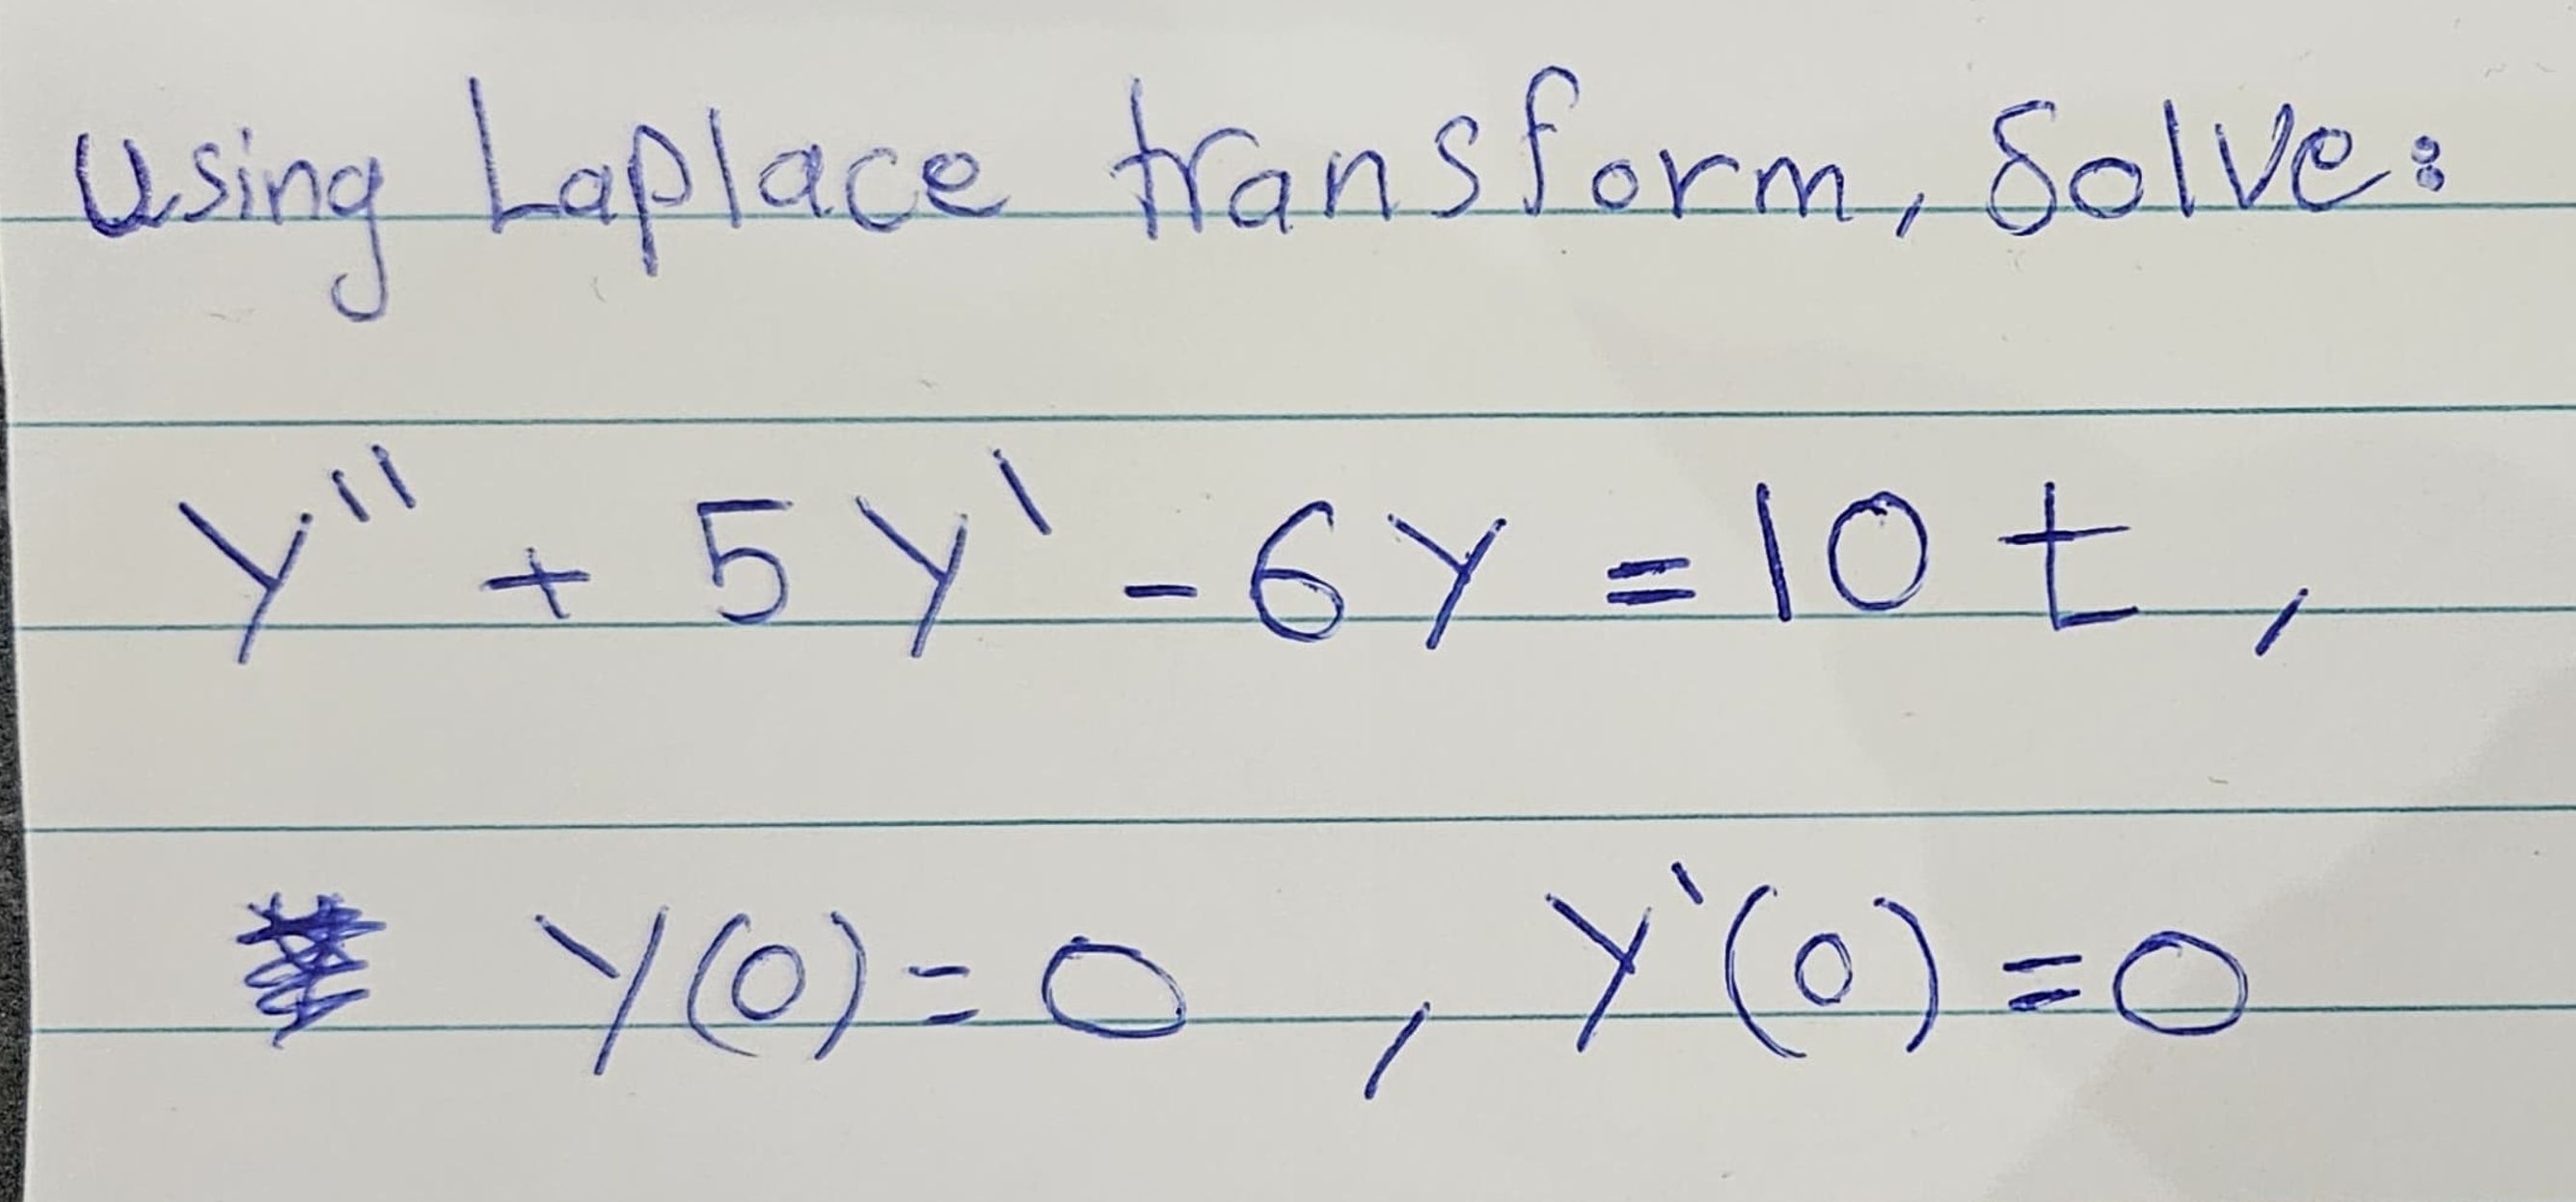 Using Laplace transform, Solve:
y'' + 5y' - 6y = 10 t ,
y(0) = 0 , y'(0) = 0